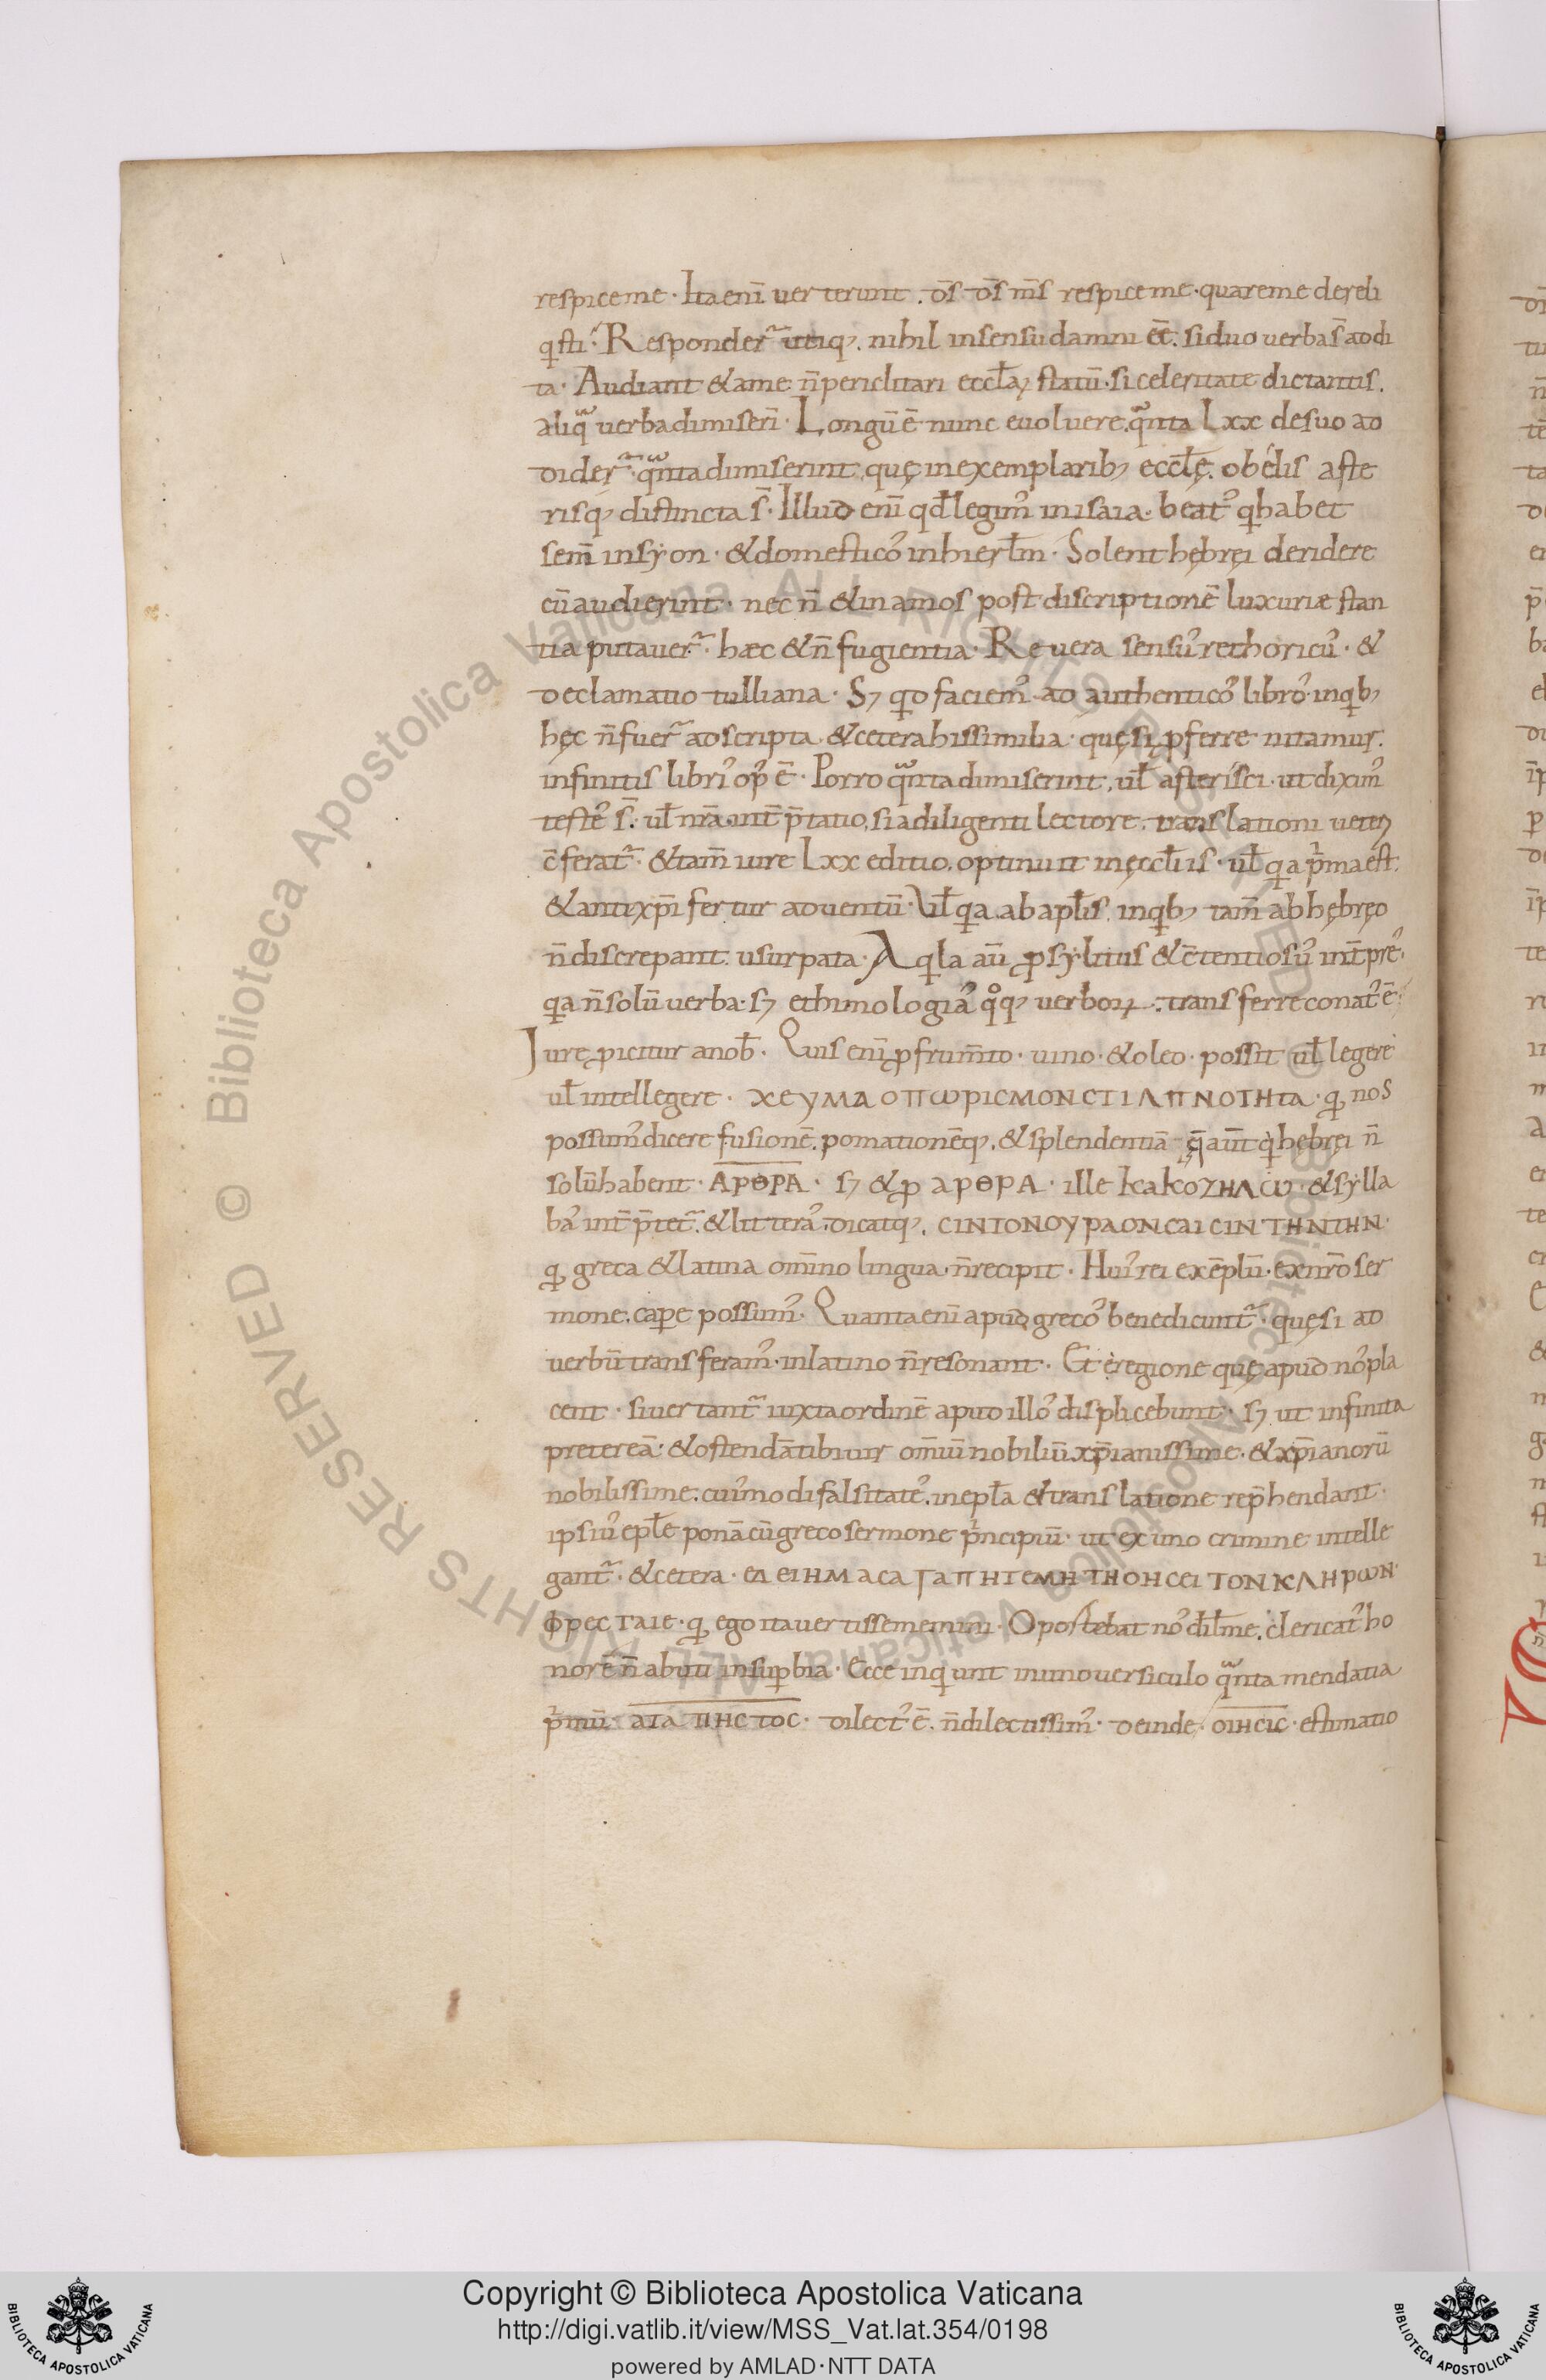 respice me · Ita eni̅ uerterunt . d̅s d̅s m̅s respice me · quare me dereli
qͥsti · Responder̃ utiq; . nihil insensu damni ee̅ . si duo uerba s̅ addi
ta · Audiant & a me n̅ periclitari eccl̅aꝝ statu̅ · si celeritate dictantis .
aliqͣ uerba dimiseri̅ · Longu̅ e̅ nunc euoluere . qͣnta Lxx de suo ad
dider̃ · qͣnta dimiserint . quę in exemplarib; eccl̅ę . obelis aste
risq; distincta s̅ · Illud eni̅ qd̅ legim᾿ in isaia · beat᾿ qͥ habet
sem̅ in syon · & domestico᾿ in hierl̅m · Solent hębręi deridere
cu̅ audierint · nec n̅ & in amos post discriptione̅ luxuriæ stan
tia putauer̃ · hæc & n̅ fugientia · Re uera sensu᾿ rethoricu᾿ · &
declamatio tulliana · Sꝫ qͥd faciem᾿ ad authentico᾿ libro᾿ · inqͥb;
hęc n̅ fuer̃ adscripta . & cetera his similia · quę si ꝓferre nitamur .
infinitis libri᾿ op᾿ e̅ · Porro qͣnta dimiserint , ul̅ asterisci · ut dixim᾿
teste᾿ s̅ · ul̅ nr̅a int̅p̅tatio , si a diligenti lectore . translationi ueteꝝ
c̅ferat̃ · & tam̅ iure Lxx editio . optinuit in ęccl̅iis · ul̅ qͥa pͥma est ·
& anti xp̅i fertur aduentu̅ · Ul̅ qͥa . ab apl̅is . inqͥb; tam̅ ab hębręo
n̅ discrepant . usurpata · Aqͥla au̅ ꝓsylitus & c̅tentiosu᾿ int̅pre᾿ ·
qͥa n̅ solu̅ uerba · sꝫ ethimologia᾿ qͦq; uerboꝝ · transferre conat᾿ e̅ ·
Jure ꝓicitur a nob̅ · Quis eni̅ ꝓ frum̅to · uino · & oleo · possit ul̅ legere
ul̅ intellegere · ΧΕΥΜΑ ΟΠΩΡΙCΜΟΝ CΤΙΛΠΝΟΤΗτα · qͥ nos
possum᾿ dicere fusione̅ . pomatione̅q; . & splendentia̅ · q̅ aut̅ qͥ hębręi n̅
solu̅ habent · ΑΡΘΡΑ · sꝫ & ꝓ ΑΡΘΡΑ · ille ΚΑΚΟΖΗΛΩ · & sylla
ba᾿ int̅p̅tet̃ . & littera᾿ . dicatq; . CΙΝ ΤΟΝ ΟΥΡΑΟΝ CΑΙ CΙΝ ΤΗΝ ΤΗΝ ·
qͥ greca & latina om̅ino lingua · n̅ recipit · Hui᾿ rei exe̅plu̅ · ex nr̅o ser
mone . cape̅ possum᾿ · Quanta eni̅ apud greco᾿ bene dicunt̃ · quę si ad
uerbu̅ transferam᾿ · in latino n̅ resonant · Et e regione quę apud no᾿ pla
cent · si uertant̃ iuxta ordine̅ aput illo᾿ displicebunt · sꝫ ut infinita
preterea̅ · & ostenda̅ tibi uir om̅iu̅ nobiliu̅ xp̅ianissime · & xp̅ianoru̅
nobilissime . cui᾿modi falsitate᾿ . in epl̅a & translatione rep̅hendant ·
ipsiu᾿ epl̅e pona̅ cu̅ greco sermone pͥncipiu̅ · ut ex uno crimine intelle
gant̃ · & cetera · ΕΔΕΙ ΗΜΑC ΑΓΑΠΗΤΕ ΜΗ ΤΗ ΟΗCΕΙ ΤΟΝ ΚΛΗΡΩΝ ·
ΦΡΕCΤΑΙΕ · qͥ ego ita uertisse memini · Oportebat no᾿ dil̅me . clericat᾿ ho
nore̅ n̅ abuti insuꝑbia · Ecce inqͥunt in uno uersiculo qͣnta mendatia
pͥmu̅ · ΑΓΑΠΗCΤΟC · dilect᾿ e̅ . n̅ dilectissim᾿ · deinde · ΟΙΗCΙC · estimatio
Copyright © Biblioteca Apostolica Vaticana
http://digi.vatlib.it/view/MSS_Vat.lat.354/0198
powered by AMLAD·NTT DATA